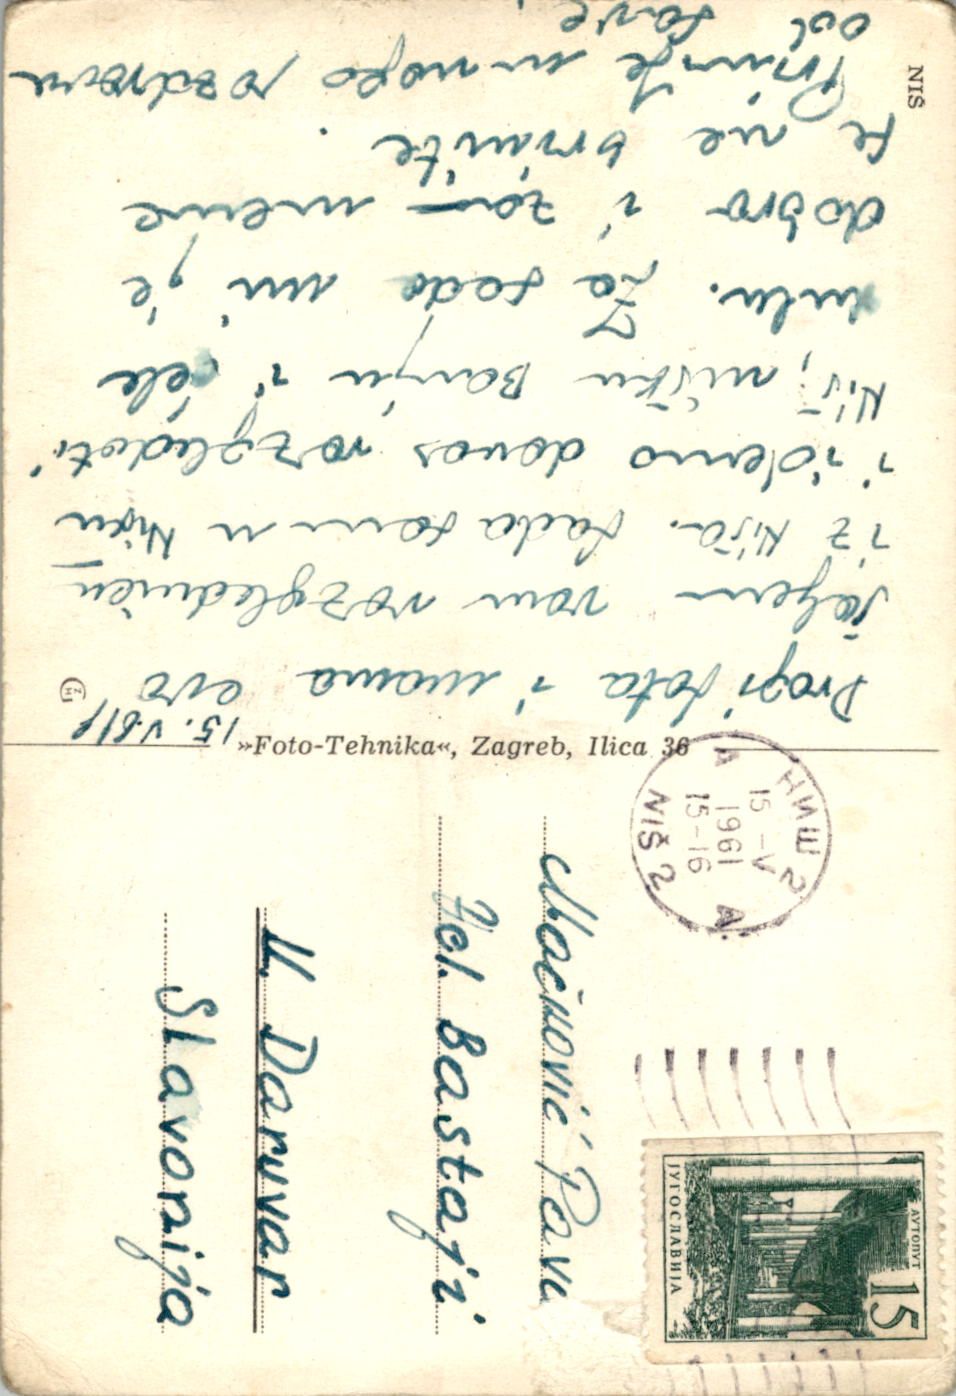 15. V. 61
Dragi tata i mama evo
šaljem vam razglednicu
iz Niša. Sada sam u Nišu
i idemo danas razgledati
Niš, nišku Banju i ćele
kulu. Za sada mi je
dobro i za mene
se ne brinite.
Primite mnogo pozdrava
od Save.
NIŠ
»Foto-Tehnika«, Zagreb, Ilica 36
НИШ 2
15-V
1961
15-16
NIŠ 2
A
Mačković Pava
Bastaji
Daruvar
Slavonija
АУТОПУТ
15
ЈУГОСЛАВИЈА